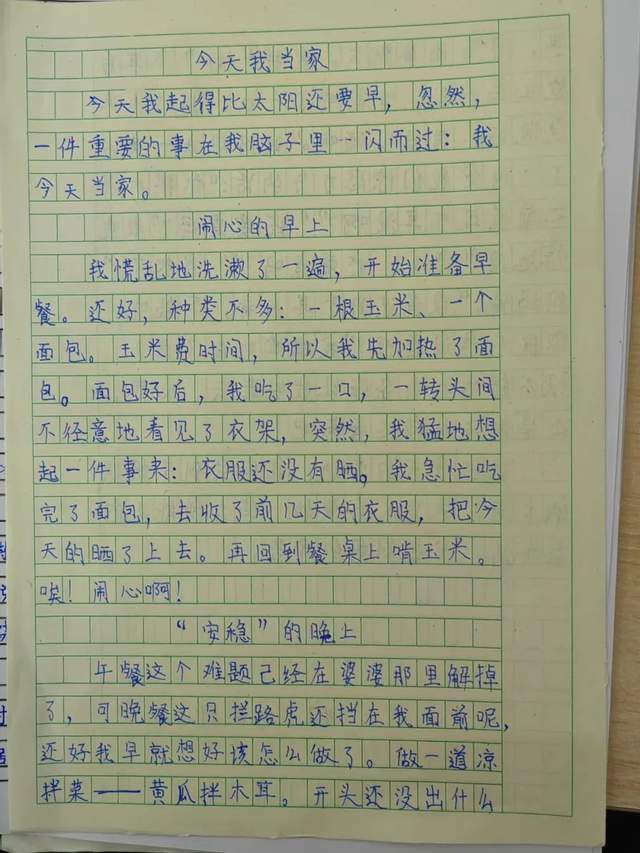 今天我当家
今天我起得比太阳还要早，忽然，
一件重要的事在我脑子里一闪而过：我
今天当家。
闹心的早上
我慌乱地洗漱了一遍，开始准备早
餐。还好，种类不多：一根玉米、一个
面包。玉米费时间，所以我先加热了面
包。面包好后，我吃了一口，一转头间
不径意地看见了衣架，突然，我猛地想
起一件事来：衣服还没有晒。我急忙吃
完了面包，去收了前几天的衣服，把今
天的晒了上去。再回到餐桌上啃玉米。
唉！闹心啊！
“安稳”的晚上
午餐这个难题已经在婆婆那里解掉
了，可晚餐这只拦路虎还挡在我面前呢，
还好我早就想好该怎么做了。做一道凉
拌菜——黄瓜拌木耳。开头还没出什么